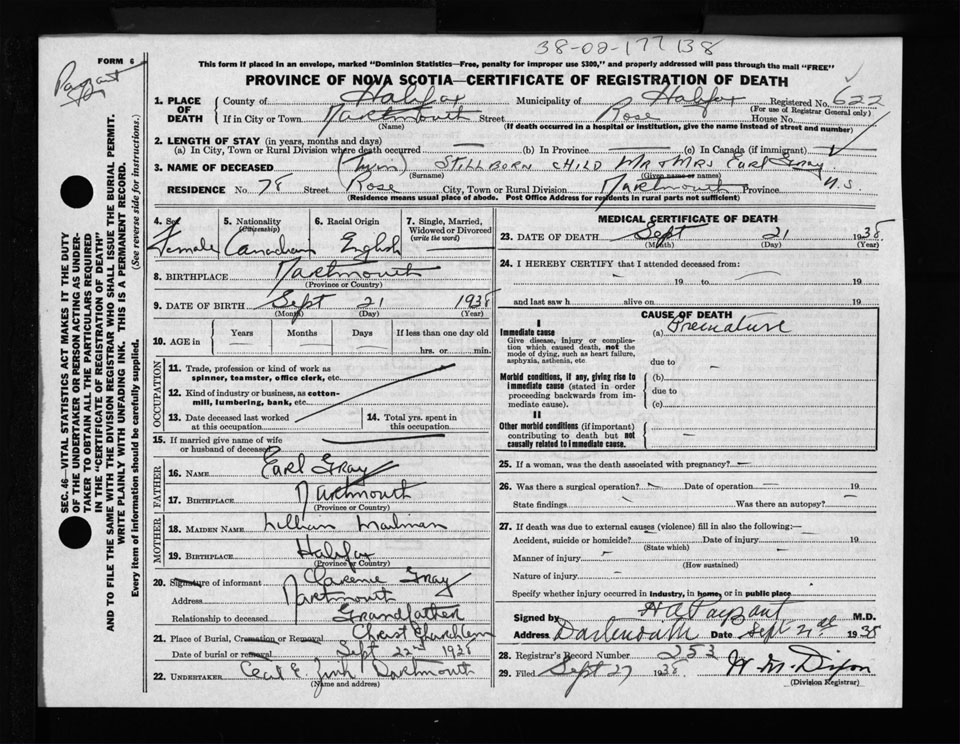 38-02-177138
FORM 6
Payzant
This form if placed in an envelope, marked "Dominion Statistics—Free, penalty for improper use $300," and properly addressed will pass through the mail "FREE"
PROVINCE OF NOVA SCOTIA—CERTIFICATE OF REGISTRATION OF DEATH
1. PLACE OF DEATH
County of Halifax Municipality of Halifax Registered No. 622
(For use of Registrar General only)
If in City or Town Dartmouth Street Rose House No.
(Name) (If death occurred in a hospital or institution, give the name instead of street and number)
2. LENGTH OF STAY (in years, months and days)
(a) In City, Town or Rural Division where death occurred — (b) In Province — (c) In Canada (if immigrant)
3. NAME OF DECEASED (Twin) STILLBORN CHILD Mr & Mrs Earl Gray
(Surname) (Given name or names)
RESIDENCE No. 78 Street Rose City, Town or Rural Division Dartmouth Province N.S.
(Residence means usual place of abode. Post Office Address for residents in rural parts not sufficient)
4. Sex Female
5. Nationality (Citizenship) Canadian
6. Racial Origin English
7. Single, Married, Widowed or Divorced (write the word) —
8. BIRTHPLACE Dartmouth
(Province or Country)
9. DATE OF BIRTH Sept 21 1938
(Month) (Day) (Year)
10. AGE in Years Months Days If less than one day old
hrs. or min.
OCCUPATION
11. Trade, profession or kind of work as spinner, teamster, office clerk, etc.
12. Kind of industry or business, as cotton-mill, lumbering, bank, etc.
13. Date deceased last worked at this occupation
14. Total yrs. spent in this occupation
15. If married give name of wife or husband of deceased
FATHER
16. NAME Earl Gray
17. BIRTHPLACE Dartmouth
(Province or Country)
MOTHER
18. MAIDEN NAME Lillian Mailman
19. BIRTHPLACE Halifax
(Province or Country)
20. Signature of informant Clarence Gray
Address Dartmouth
Relationship to deceased Grandfather
21. Place of Burial, Cremation or Removal Christ Church
Date of burial or removal Sept 22nd 1938
22. UNDERTAKER Cecil E Zink Dartmouth
(Name and address)
MEDICAL CERTIFICATE OF DEATH
23. DATE OF DEATH Sept 21 1938
(Month) (Day) (Year)
24. I HEREBY CERTIFY that I attended deceased from:
19 to 19
and last saw h alive on 19
CAUSE OF DEATH
I
Immediate cause (a) Premature
Give disease, injury or complication which caused death, not the mode of dying, such as heart failure, asphyxia, asthenia, etc.
due to
Morbid conditions, if any, giving rise to immediate cause (stated in order proceeding backwards from immediate cause).
(b)
due to
(c)
II
Other morbid conditions (if important) contributing to death but not causally related to immediate cause.
25. If a woman, was the death associated with pregnancy? —
26. Was there a surgical operation? — Date of operation — 19
State findings Was there an autopsy?
27. If death was due to external causes (violence) fill in also the following:—
Accident, suicide or homicide? Date of injury 19
(State which)
Manner of injury
(How sustained)
Nature of injury
Specify whether injury occurred in industry, in home, or in public place
Signed by H A Payzant M.D.
Address Dartmouth Date Sept 21st 1938
28. Registrar's Record Number 253
29. Filed Sept 27 1938 W. M. Dixon
(Division Registrar)
SEC. 46—VITAL STATISTICS ACT MAKES IT THE DUTY
OF THE UNDERTAKER OR PERSON ACTING AS UNDER-
TAKER TO OBTAIN ALL THE PARTICULARS REQUIRED
IN THE "CERTIFICATE OF REGISTRATION OF DEATH"
AND TO FILE THE SAME WITH THE DIVISION REGISTRAR WHO SHALL ISSUE THE BURIAL PERMIT.
WRITE PLAINLY WITH UNFADING INK. THIS IS A PERMANENT RECORD.
Every item of information should be carefully supplied. (See reverse side for instructions.)